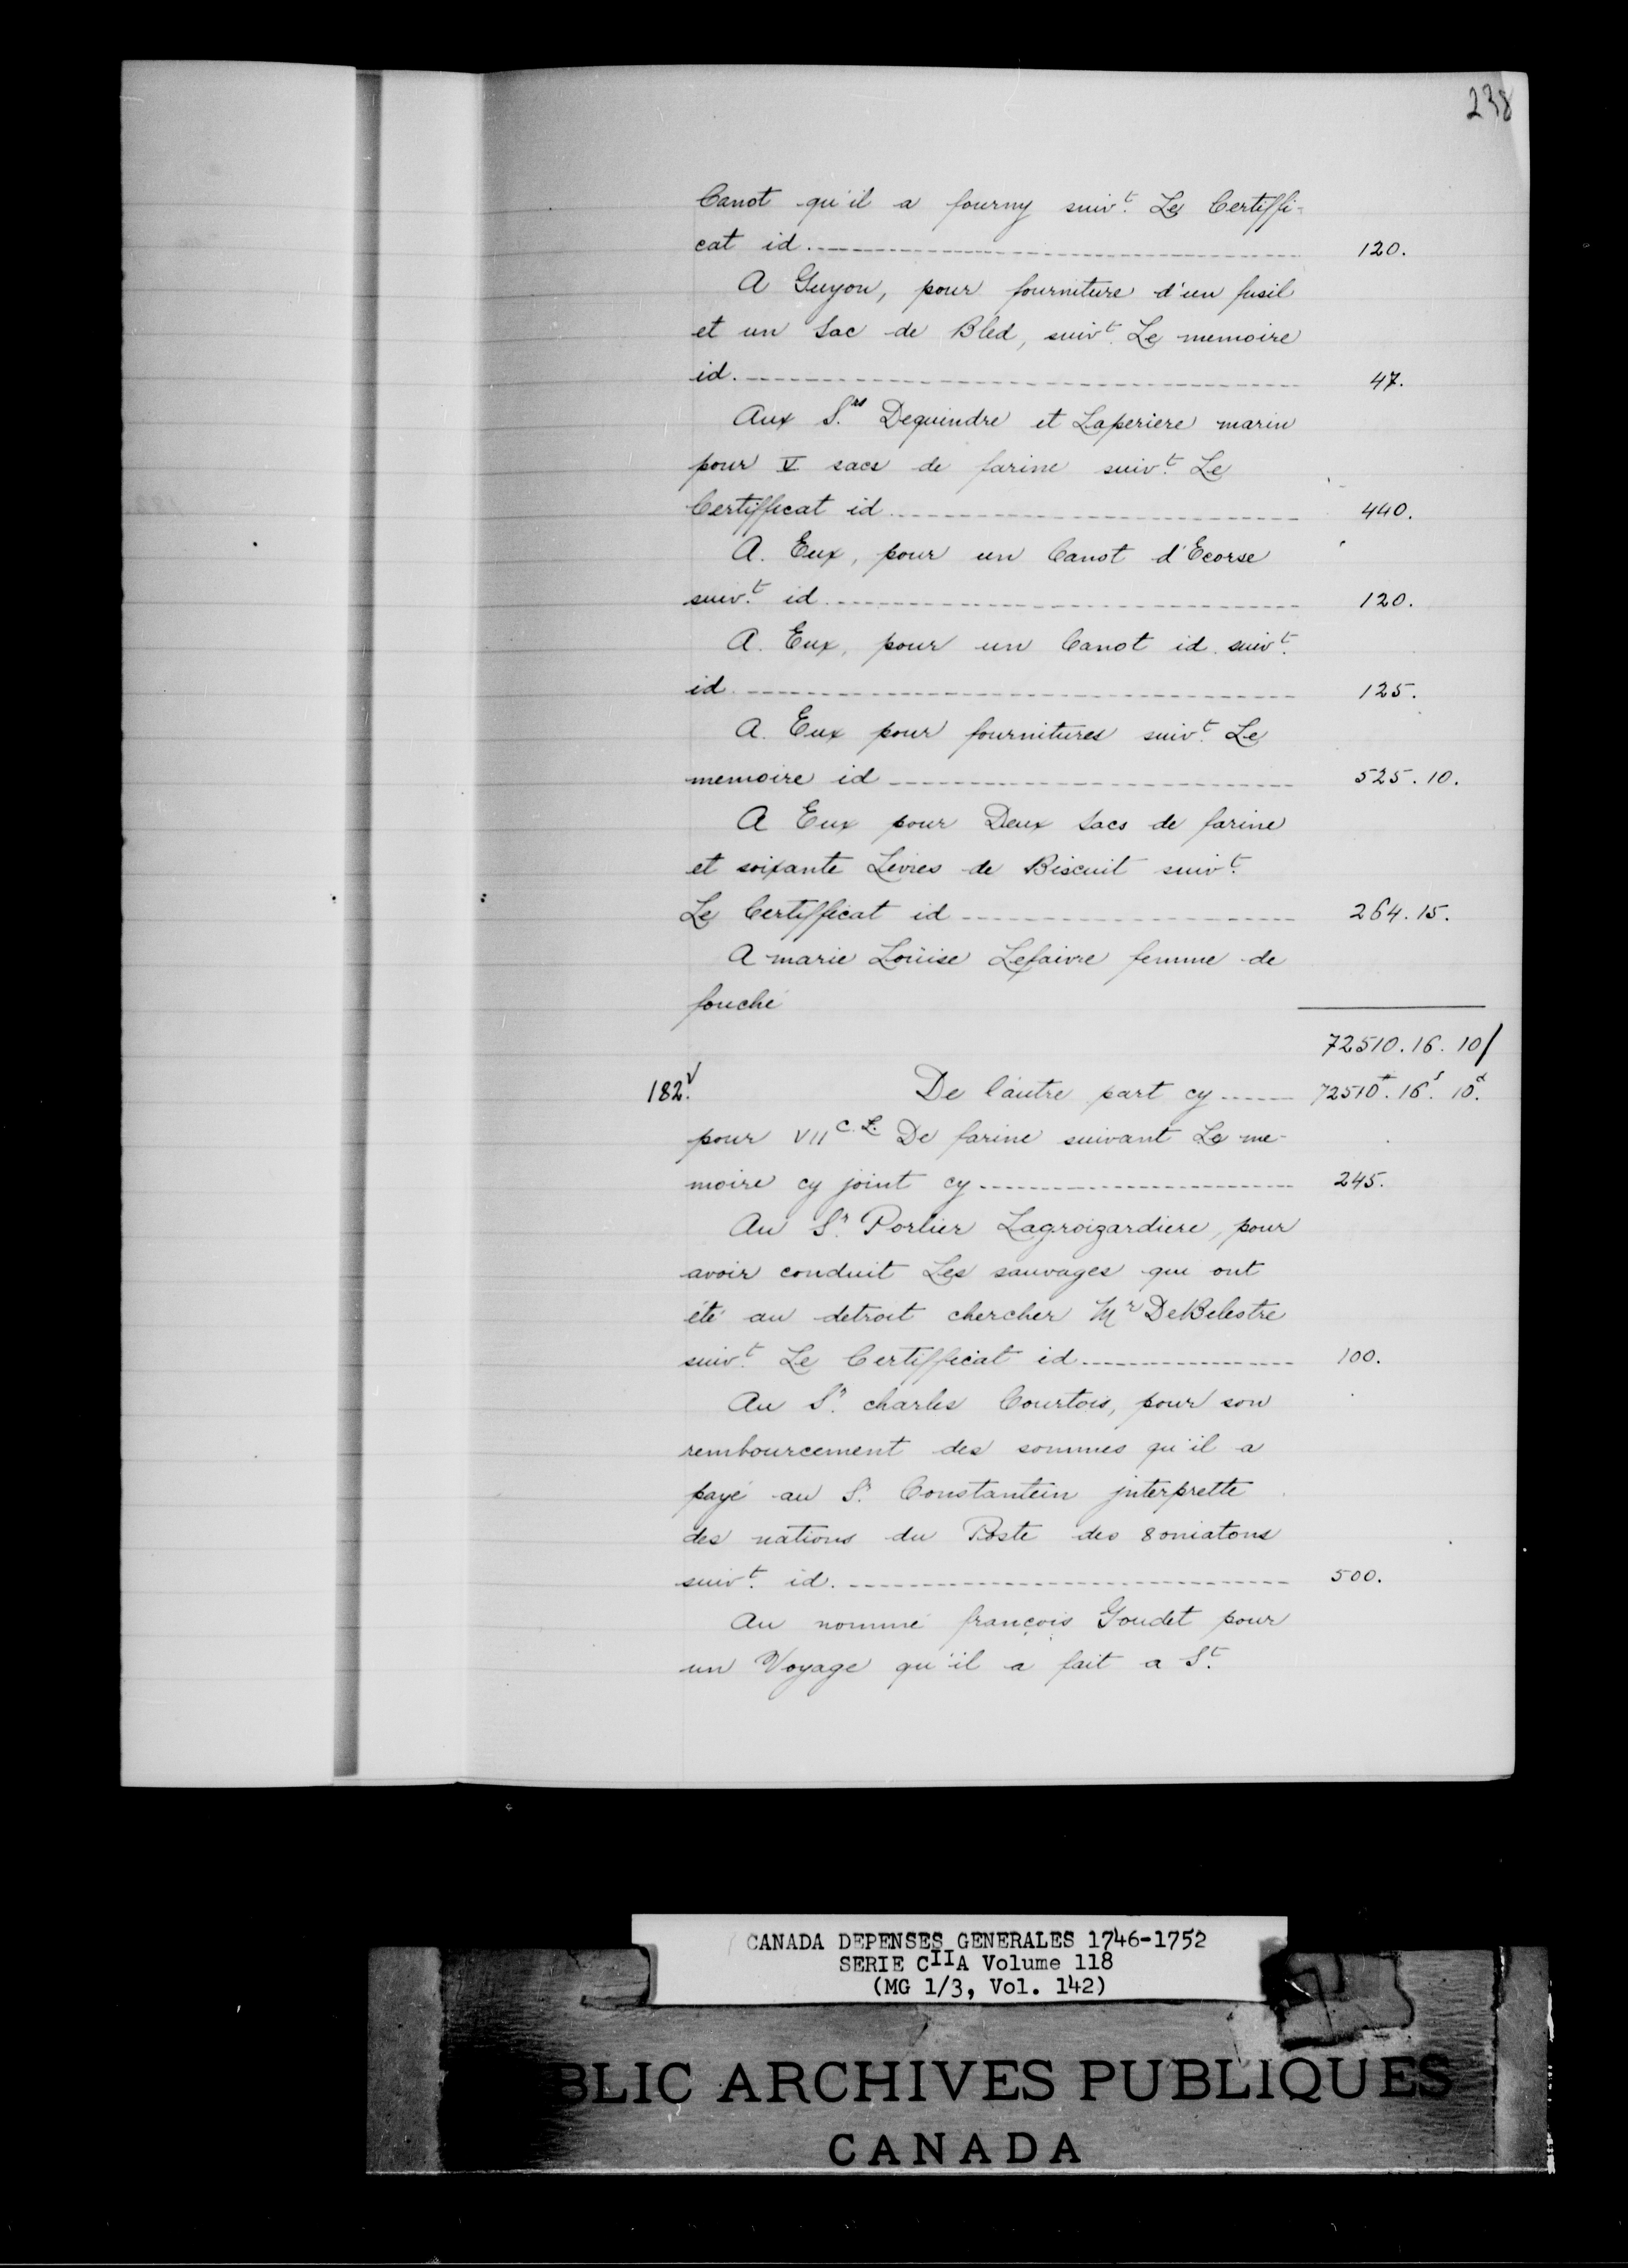 238
Canot qu'il a fourny suiv.t Le Certiffi-
cat id. 120.
A Guyon, pour fourniture d'un fusil
et un Sac de Bled, suiv.t Le memoire
id. 47.
Aux S.rs Dequindre et Laperiere marin
pour V sacs de farine suiv.t Le
Certifficat id 440.
A. Eux, pour un Canot d'Ecorse
suiv.t id 120.
A. Eux, pour un Canot id. suiv.t
id 125.
A. Eux pour fournitures suiv.t Le
memoire id 525. 10.
A Eux pour Deux Sacs de farine
et soixante Livres de Biscuit suiv.t
Le Certifficat id 264. 15.
A marie Loüise Lefaivre femme de
fouché
72510. 16. 10/
182.v De l'autre part cy 72510#. 16s. 10d.
pour VII C. L. De farine suivant Le me-
moire cy joint cy 245.
Au S.r Porlier Lagroizardiere, pour
avoir conduit Les sauvages qui ont
été au detroit chercher Mr DeBelestre
suiv.t Le Certifficat id 100.
Au S.r charles Courtois, pour son
rembourcement des sommes qu'il a
payé au S.r Constantein jnterprette
des nations du Poste des 8oniatons
suiv.t id. 500.
Au nommé françois Goudet pour
un Voyage qu'il a fait a S.t
CANADA DEPENSES GENERALES 1746-1752
SERIE CIIA Volume 118
(MG 1/3, Vol. 142)
BLIC ARCHIVES PUBLIQUES
CANADA